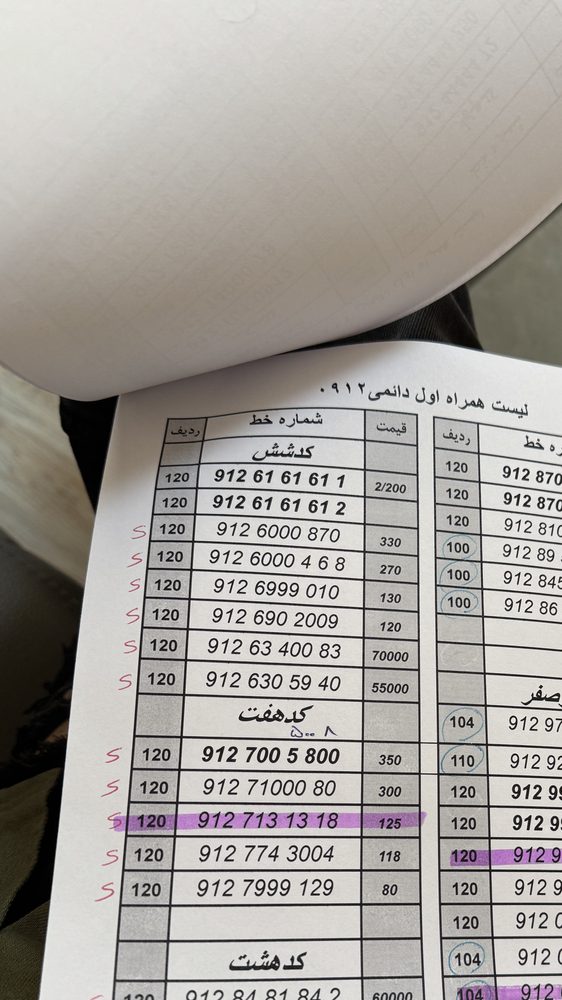 لیست همراه اول دائمی ۰۹۱۲
ردیف شماره خط قیمت
کدشش
120 912 61 61 61 1 2/200
120 912 61 61 61 2
S 120 912 6000 870 330
S 120 912 6000 4 6 8 270
S 120 912 6999 010 130
S 120 912 690 2009 120
S 120 912 63 400 83 70000
S 120 912 630 59 40 55000
کدهفت
۵۰۰۸
S 120 912 700 5 800 350
S 120 912 71000 80 300
S 120 912 713 13 18 125
S 120 912 774 3004 118
S 120 912 7999 129 80
کدهشت
120 912 84 81 84 2 60000
ردیف خط
120 912 870
120 912 870
120 912 810
100 912 89
100 912 845
100 912 86
104 912 97
110 912 92
120 912 99
120 912 99
120 912 9
120 912 9
120 912 0
104 912 0
104 912